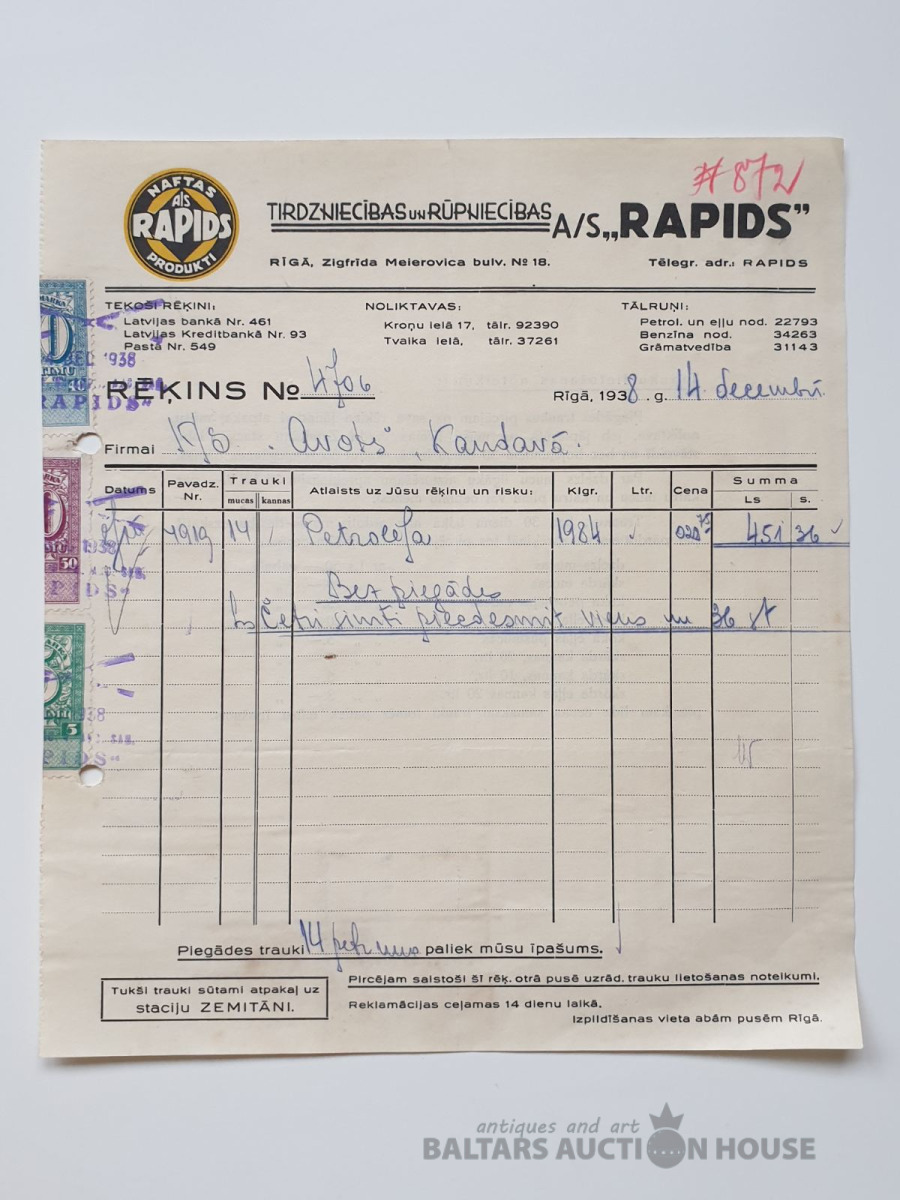 #872
NAFTAS
A/S
RAPIDS
PRODUKTI
TIRDZNIECĪBAS UN RŪPNIECĪBAS A/S „RAPIDS”
RĪGĀ, Zigfrīda Meierovica bulv. № 18. Tēlegr. adr.: RAPIDS
TEKOŠI RĒĶINI: NOLIKTAVAS: TĀLRUŅI:
Latvijas bankā Nr. 461 Kroņu ielā 17, tālr. 92390 Petrol. un eļļu nod. 22793
Latvijas Kredītbankā Nr. 93 Tvaika ielā, tālr. 37261 Benzīna nod. 34263
Pastā Nr. 549 Grāmatvedība 31143
RĒĶINS № 4706 Rīgā, 1938. g. 14 decembrī.
Firmai K/S. „Avots” Kandavā.
Datums Pavadz. Nr. Trauki Atlaists uz Jūsu rēķinu un risku: Klgr. Ltr. Cena Summa
mucas kannas Ls s.
4919 14 Petroleja 1984 451 36
Bez piegādes
Ls Četri simti piecdesmit viens un 36 st
40
938
RAPIDS"
50
1938
5
938
Piegādes trauki 14 paliek mūsu īpašums.
Tukši trauki sūtami atpakaļ uz
staciju ZEMITĀNI.
Pircējam saistoši šī rēķ. otrā pusē uzrād. trauku lietošanas noteikumi.
Reklamācijas ceļamas 14 dienu laikā.
Izpildīšanas vieta abām pusēm Rīgā.
antiques and art
BALTARS AUCTION HOUSE